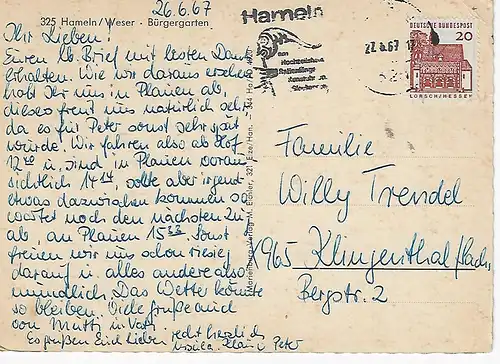 26.6.67
325 Hameln/Weser - Bürgergarten
Ihr Lieben!
Euren lb. Brief mit besten Dank
erhalten. Wie wir daraus ersehen
habt Ihr uns in Plauen ab,
dieses freut uns natürlich sehr
da es für Peter sonst sehr spät
würde. Wir fahren also ab Hof
12 u. sind in Plauen voraus
sichtlich 14, sollte aber irgend
etwas dazwischen kommen so
wartet noch den nächsten Zu
ab, an Plauen 15 33. Sonst
freuen wir uns schon riesig
darauf u. alles andere also
mündlich. Das Wetter könnte
so bleiben. Viele Grüße auch
von Mutti u. Vati.
Es grüßen Euch lieben recht herzlich
Peter
Hameln
27.6.67
DEUTSCHE BUNDESPOST
20
LORSCH/HESSEN
Familie
Willy Trendel
X965 Klingenthal/Sachs
Bergstr. 2